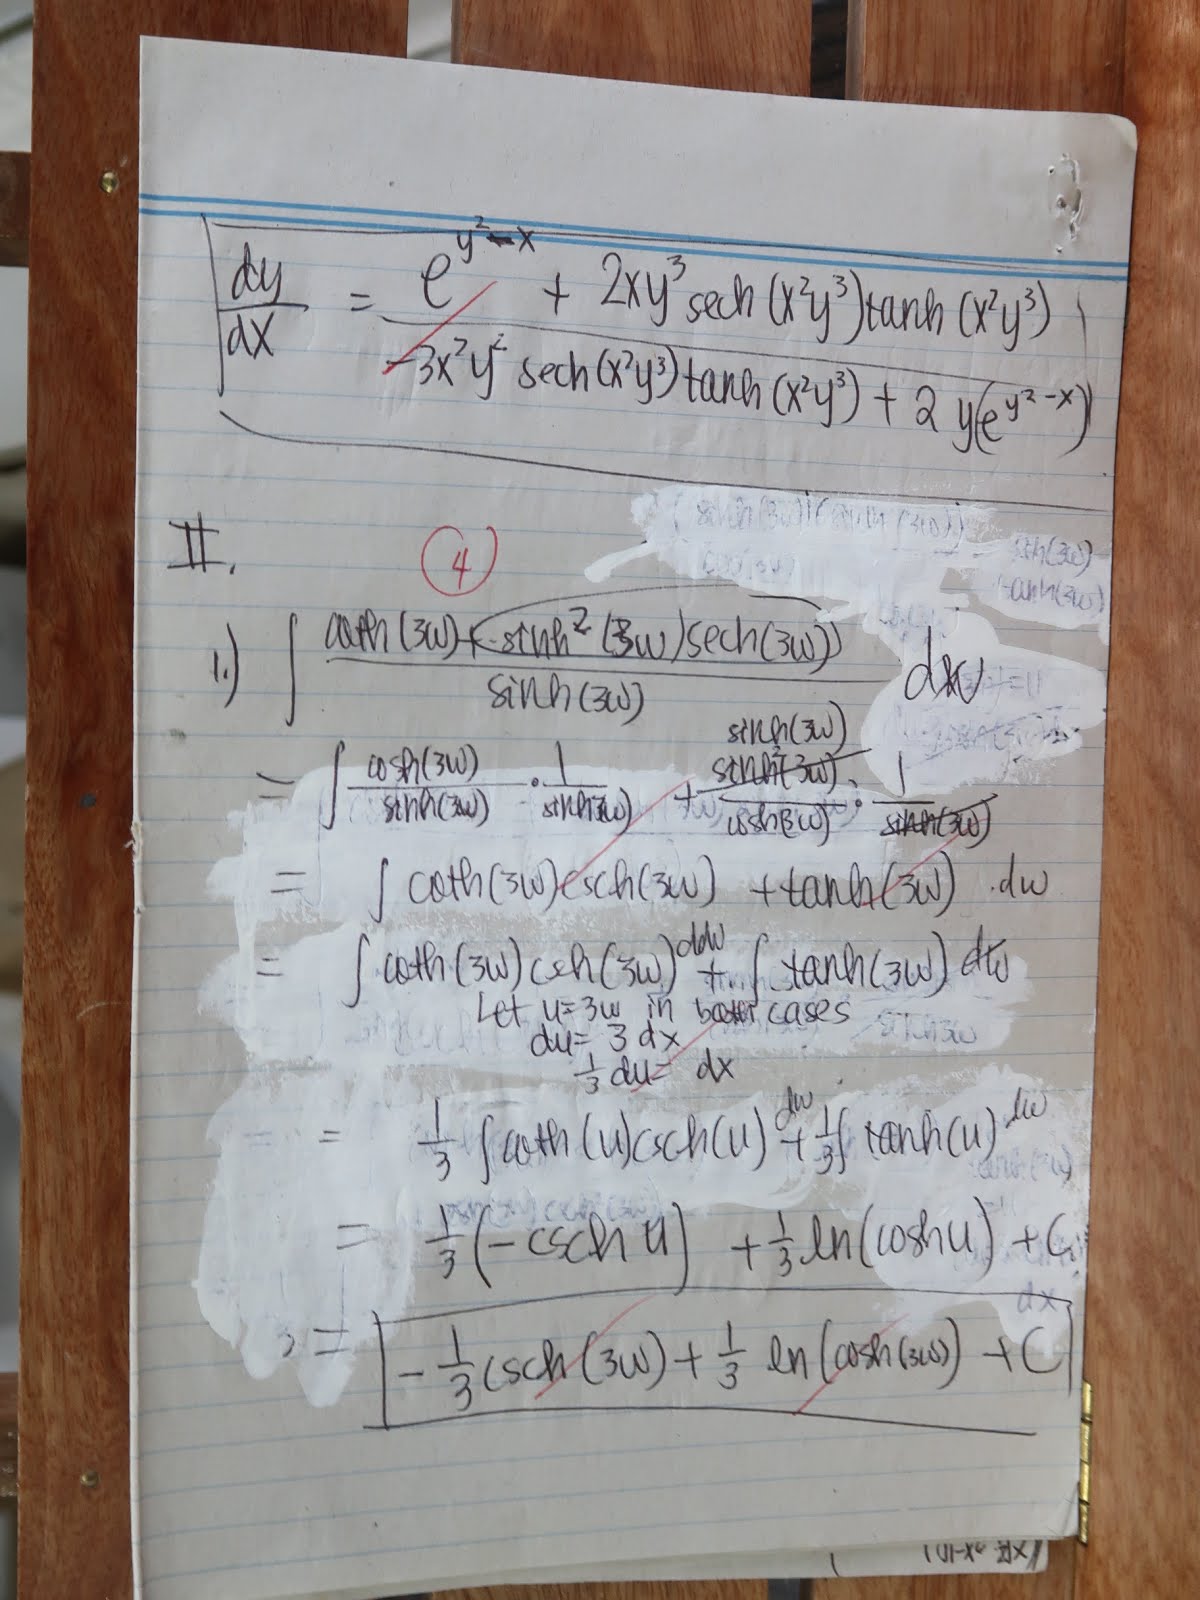 dy/dx = (e^(y²-x) + 2xy³ sech(x²y³)tanh(x²y³)) / (-3x²y² sech(x²y³)tanh(x²y³) + 2y(e^(y²-x)))
II.
4
1.) ∫ (coth(3w) + (sinh²(3w)sech(3w))) / sinh(3w) dw
= ∫ cosh(3w)/sinh(3w) · 1/sinh(3w) + sinh(3w) sinh²(3w)/cosh(3w) · 1/sinh(3w)
= ∫ coth(3w)csch(3w) + tanh(3w) · dw
= ∫ coth(3w)csch(3w) dw + ∫ tanh(3w) dw
Let u=3w in both cases
du= 3 dx
1/3 du= dx
= 1/3 ∫ coth(u)csch(u) dw + 1/3 ∫ tanh(u) dw
= 1/3 (-csch u) + 1/3 ln(cosh u) + C
= -1/3 csch(3w) + 1/3 ln(cosh(3w)) + C